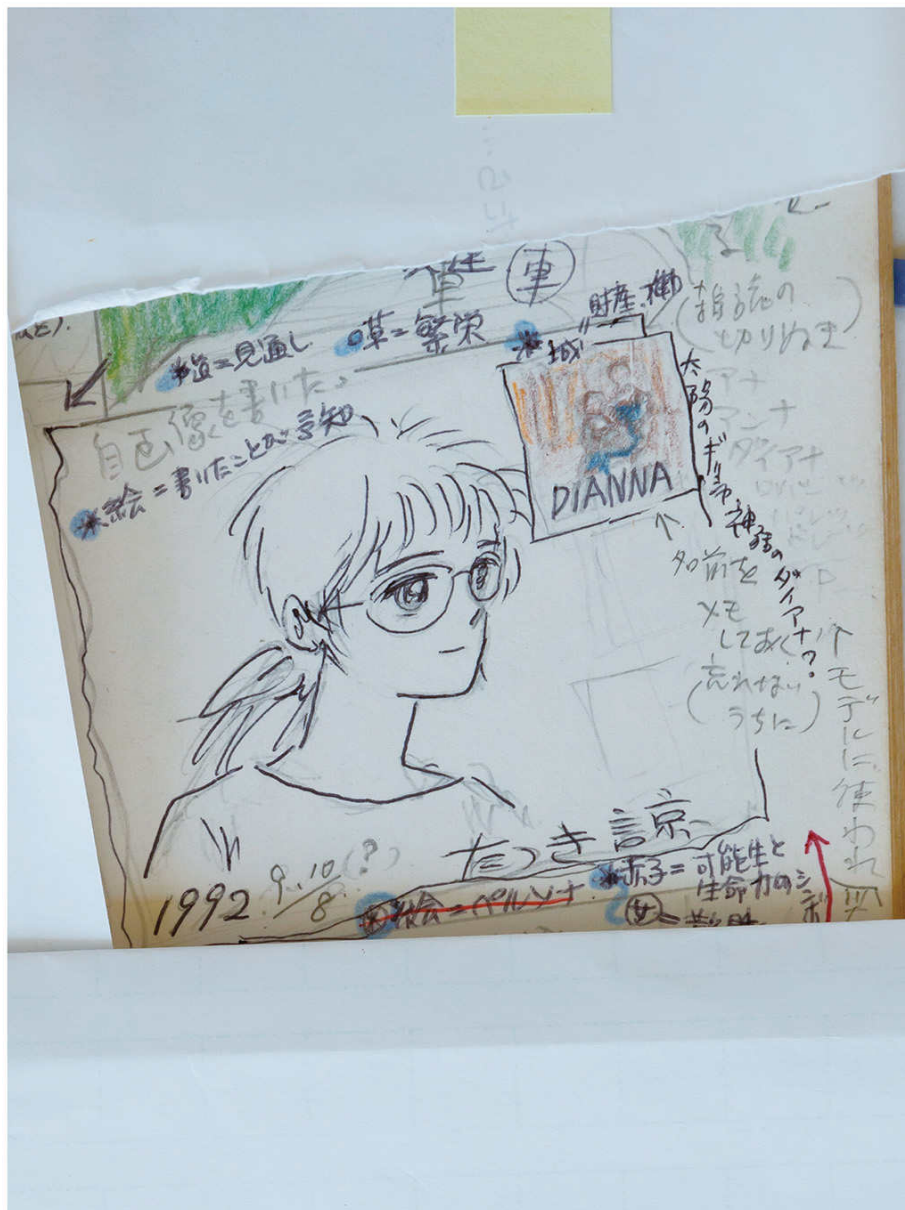 人生
車
車
財産、
(雑誌の
切りぬき)
*道=見通し
草=繁栄
*城
自画像を書いた。
*絵=書いたことが予知
DIANNA
太陽のギリシャ神話のダイアナ?
アナ
アンナ
ダイアナ
↑
名前を
メモ
しておく
(忘れない
うちに)
↑モデルに使われ
たつき諒
1992 9.10(?)
8
絵=ペルソナ
*赤子=可能生と
生命力のシンボ
女=